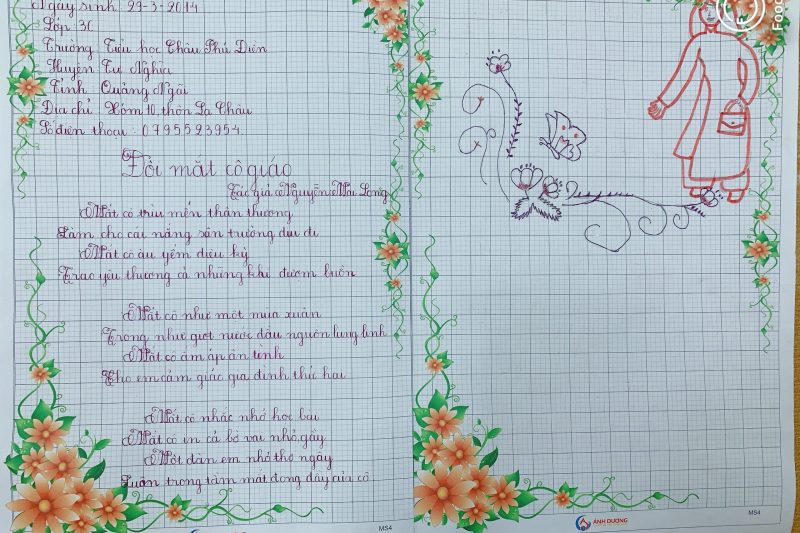 Ngày sinh: 29-3-2014
Lớp: 3C
Trường Tiểu học Châu Phú Điền
Huyện Tư Nghĩa
Tỉnh Quảng Ngãi
Địa chỉ Xóm 10, thôn La Châu
Số điện thoại: 0795523954.
Đôi mắt cô giáo
Tác giả: Nguyễn Mai Long
Mắt cô trìu mến thân thương
Làm cho cái nắng sân trường dịu đi
Mắt cô âu yếm diệu kỳ
Trao yêu thương cả những khi đượm buồn
Mắt cô như một mùa xuân
Trong như giọt nước đầu nguồn lung linh
Mắt cô ấm áp ân tình
Cho em cảm giác gia đình thứ hai
Mắt cô nhắc nhở học bài
Mắt cô in cả bờ vai nhỏ, gầy
Một đàn em nhỏ thơ ngây
Luôn trong tầm mắt đong đầy của cô
MS4
ÁNH DƯƠNG
MS4
Food